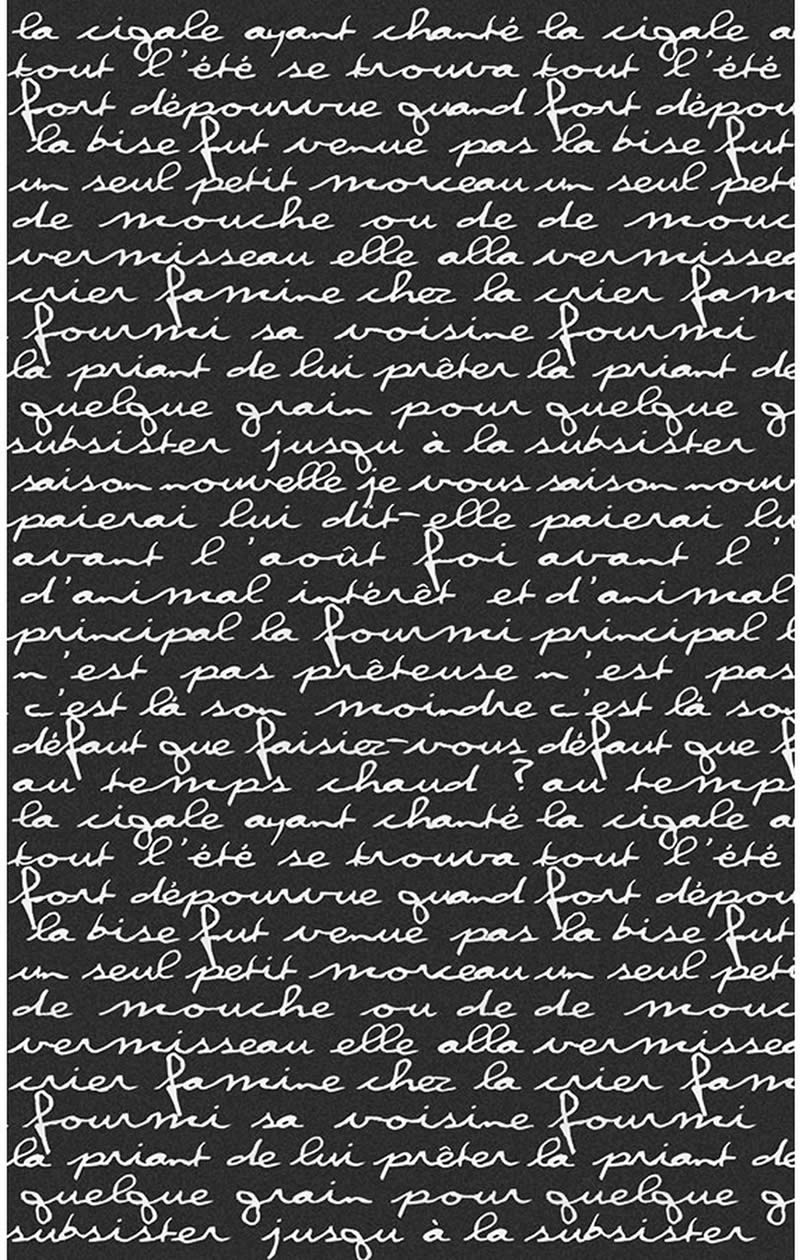 la cigale ayant chanté la cigale a
tout l'été se trouva tout l'été
fort dépourvue quand fort dépou
la bise fut venue pas la bise fut
un seul petit morceau un seul peti
de mouche ou de de mouc
vermisseau elle alla vermissea
crier famine chez la crier fam
fourmi sa voisine fourmi
la priant de lui prêter la priant de
quelque grain pour quelque g
subsister jusqu à la subsister
saison nouvelle je vous saison nouv
paierai lui dit-elle paierai lu
avant l'août foi avant l'
d'animal intérêt et d'animal
principal la fourmi principal l
n'est pas prêteuse n'est pas
c'est là son moindre c'est là son
défaut que faisiez-vous défaut que f
au temps chaud ? au temp
la cigale ayant chanté la cigale a
tout l'été se trouva tout l'été
fort dépourvue quand fort dépou
la bise fut venue pas la bise fut
un seul petit morceau un seul peti
de mouche ou de de mouc
vermisseau elle alla vermissea
crier famine chez la crier fam
fourmi sa voisine fourmi
la priant de lui prêter la priant de
quelque grain pour quelque g
subsister jusqu à la subsister